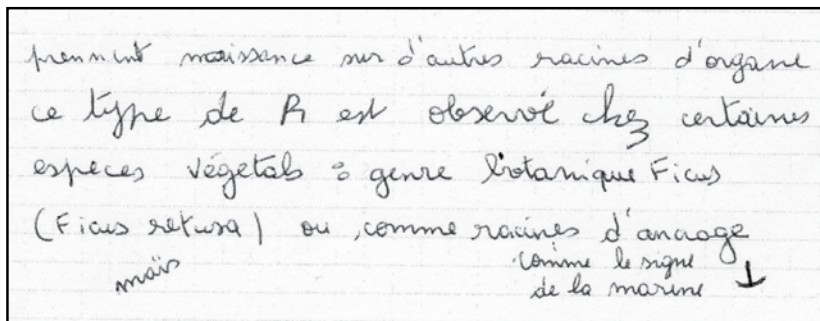 prennent naissance sur d'autres racines d'organe
ce type de R est observé chez certaines
espèces végétals : genre botanique Ficus
(Ficus retusa) ou, comme racines d'ancrage
maïs
comme le signe
de la marine ⚓